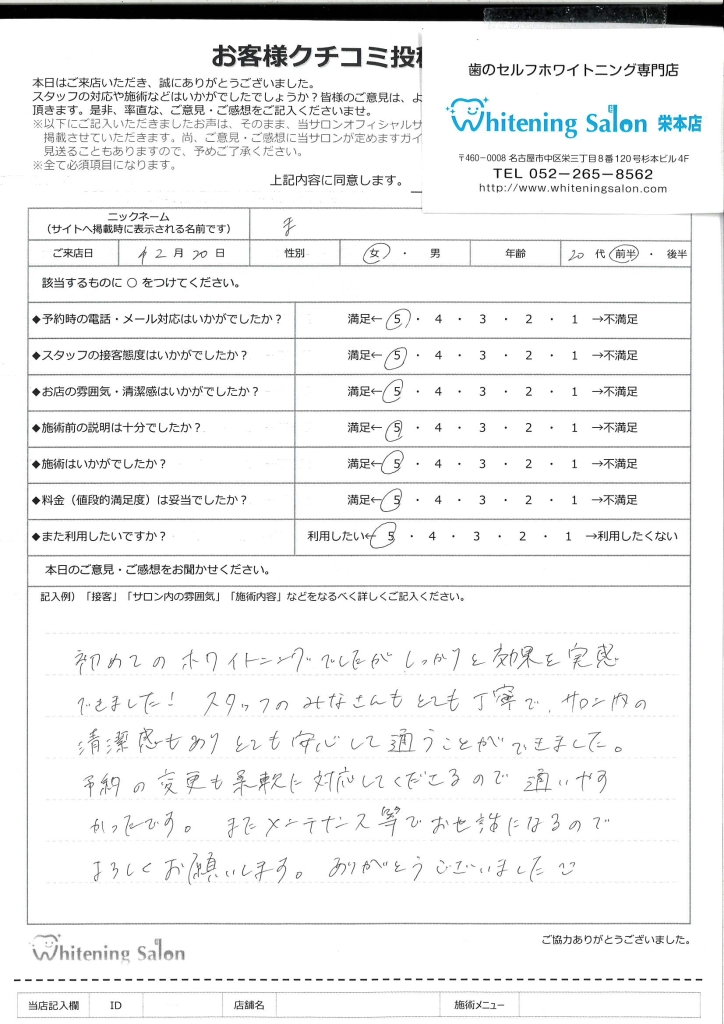 お客様クチコミ投稿
本日はご来店いただき、誠にありがとうございました。
スタッフの対応や施術などはいかがでしたでしょうか？皆様のご意見は、よ
頂きます。是非、率直な、ご意見・ご感想をご記入くださいませ。
※以下にご記入いただきましたお声は、そのまま、当サロンオフィシャルサ
掲載させていただきます。尚、ご意見・ご感想に当サロンが定めますガイ
見送ることもありますので、予めご了承ください。
※全て必須項目になります。
上記内容に同意します。
歯のセルフホワイトニング専門店
Whitening Salon 栄本店
〒460-0008 名古屋市中区栄三丁目8番120号杉本ビル4F
TEL 052-265-8562
http://www.whiteningsalon.com
ニックネーム
（サイトへ掲載時に表示される名前です） ま
ご来店日 12 月 20 日 性別 女 ・ 男 年齢 20 代 前半 ・ 後半
該当するものに ○ をつけてください。
◆予約時の電話・メール対応はいかがでしたか？ 満足← 5 ・ 4 ・ 3 ・ 2 ・ 1 →不満足
◆スタッフの接客態度はいかがでしたか？ 満足← 5 ・ 4 ・ 3 ・ 2 ・ 1 →不満足
◆お店の雰囲気・清潔感はいかがでしたか？ 満足← 5 ・ 4 ・ 3 ・ 2 ・ 1 →不満足
◆施術前の説明は十分でしたか？ 満足← 5 ・ 4 ・ 3 ・ 2 ・ 1 →不満足
◆施術はいかがでしたか？ 満足← 5 ・ 4 ・ 3 ・ 2 ・ 1 →不満足
◆料金（値段的満足度）は妥当でしたか？ 満足← 5 ・ 4 ・ 3 ・ 2 ・ 1 →不満足
◆また利用したいですか？ 利用したい← 5 ・ 4 ・ 3 ・ 2 ・ 1 →利用したくない
本日のご意見・ご感想をお聞かせください。
記入例）「接客」「サロン内の雰囲気」「施術内容」などをなるべく詳しくご記入ください。
初めてのホワイトニングでしたがしっかりと効果を実感
できました！ スタッフのみなさんもとても丁寧で、サロン内の
清潔感もありとても安心して通うことができました。
予約の変更も柔軟に対応してくださるので通いやす
かったです。 またメンテナンス等でお世話になるので
よろしくお願いします。ありがとうございました
Whitening Salon
ご協力ありがとうございました。
当店記入欄 ID 店舗名 施術メニュー